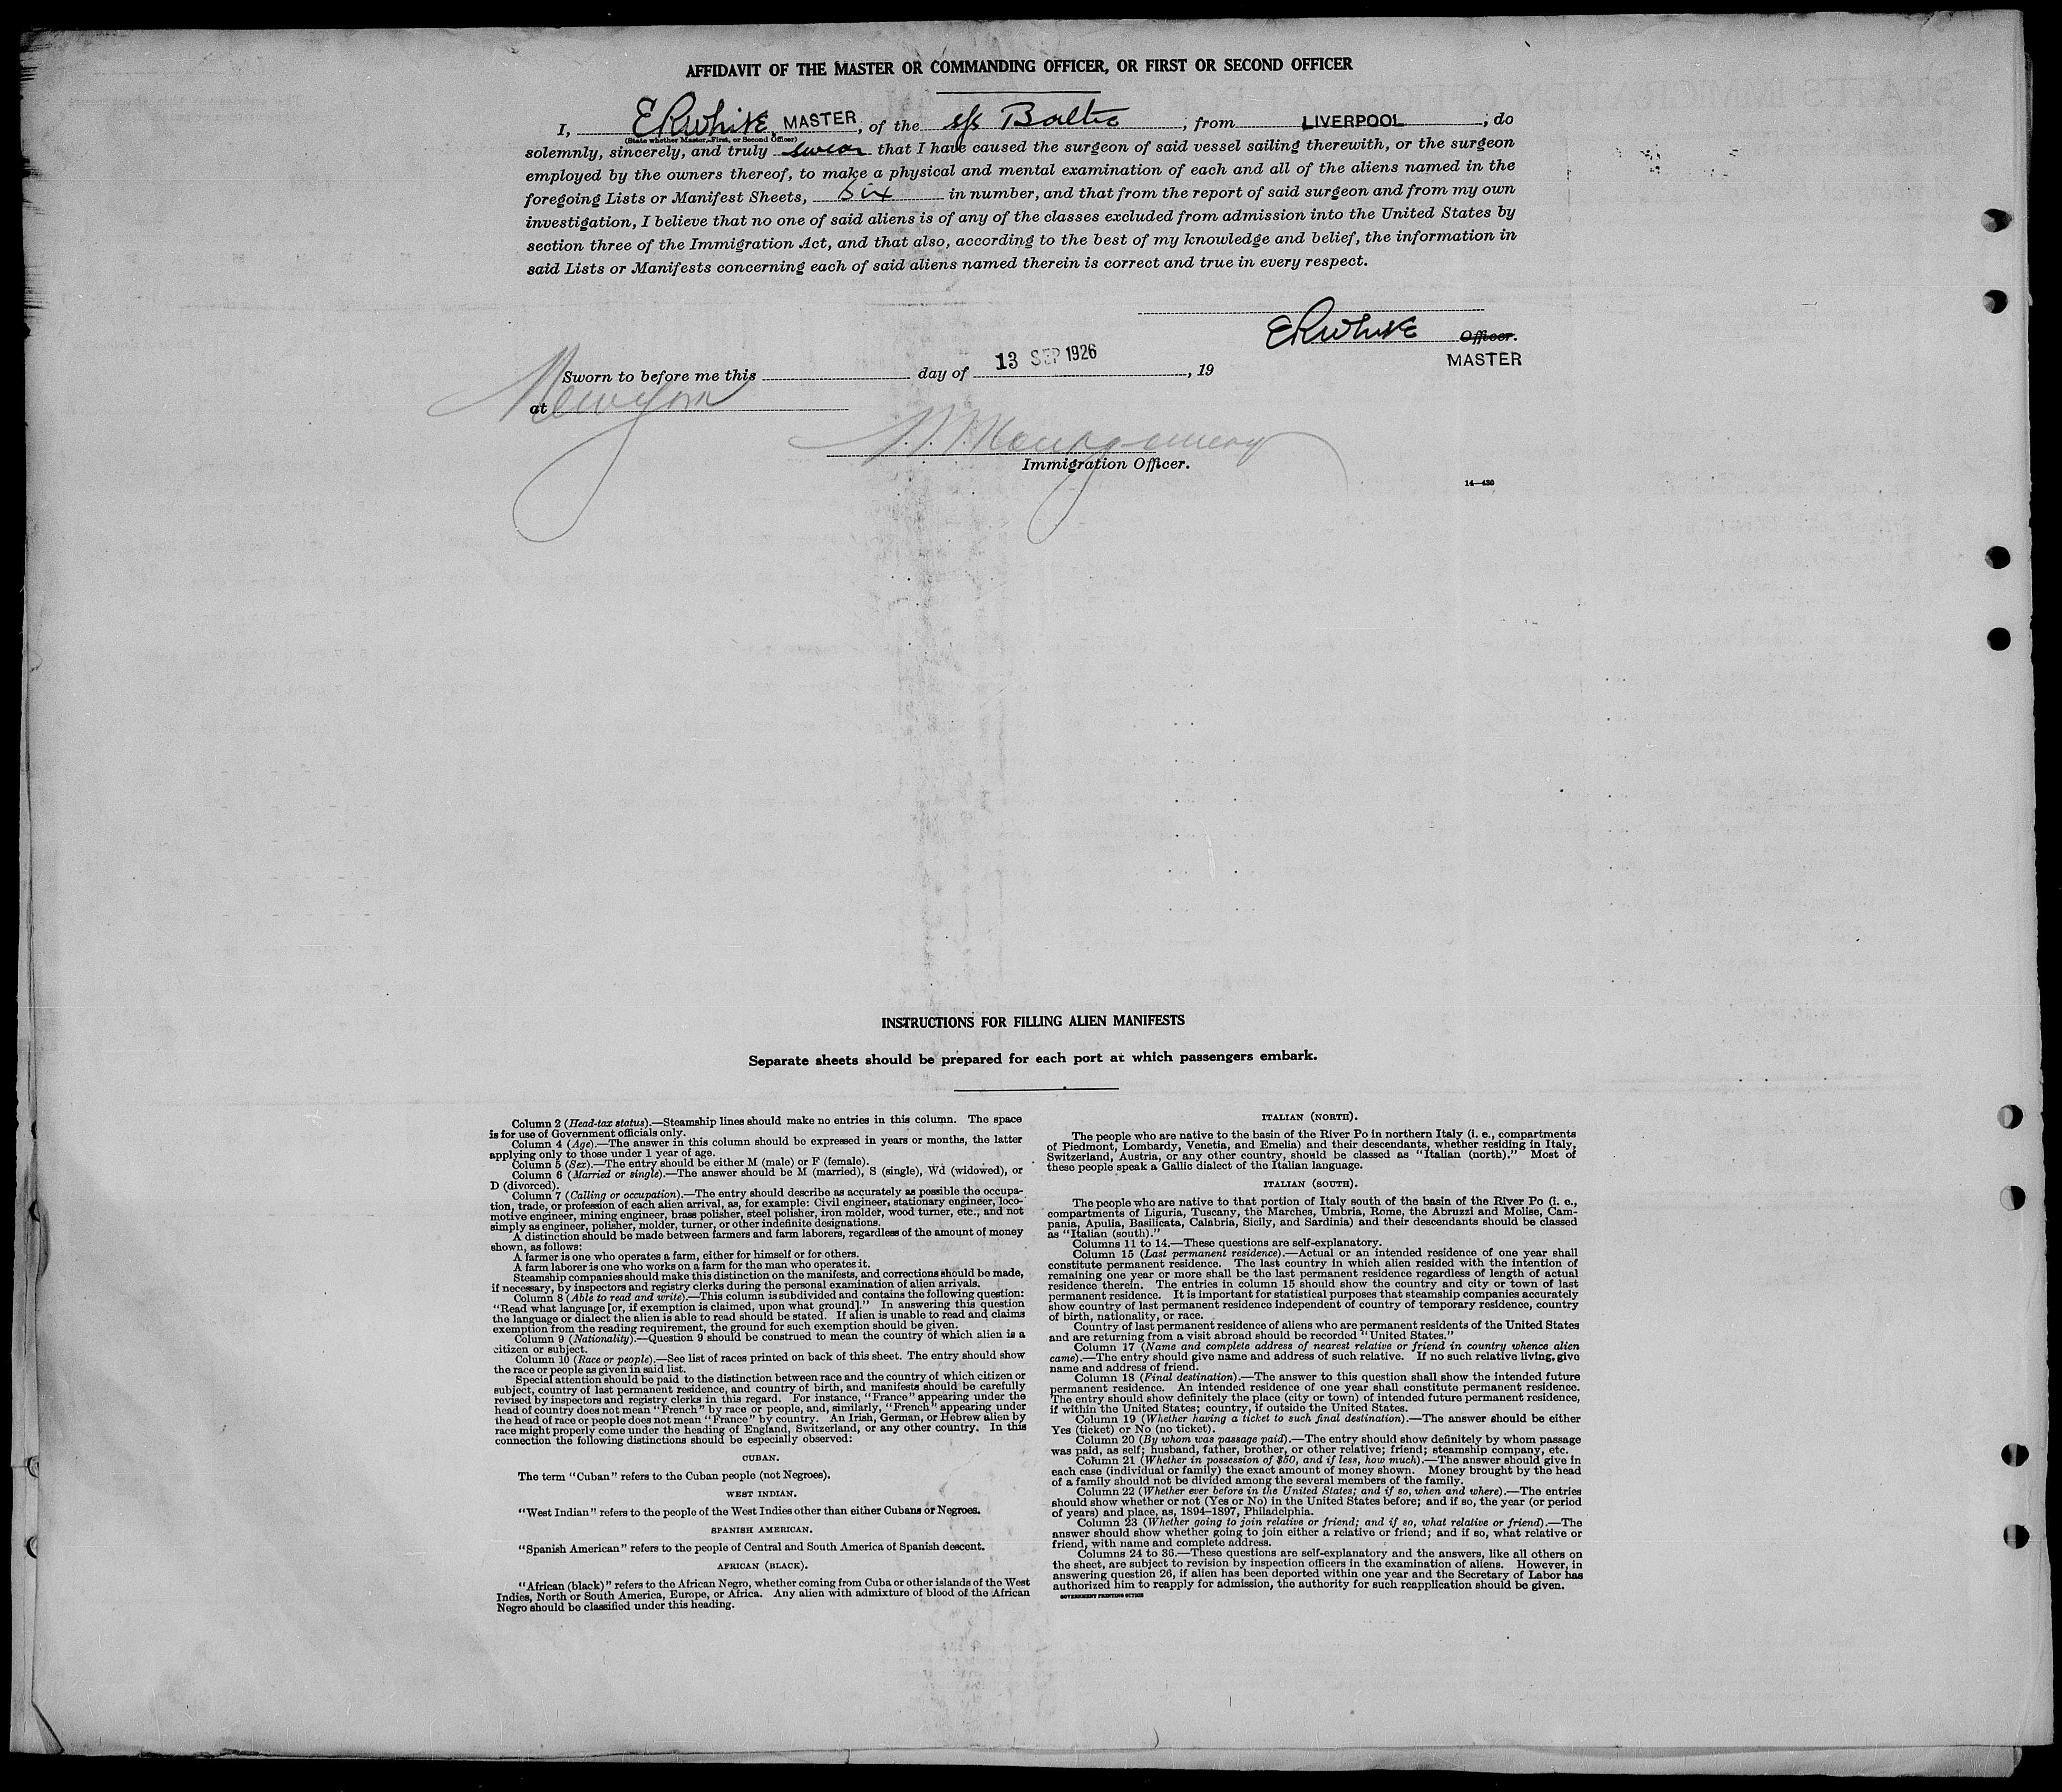 AFFIDAVIT OF THE MASTER OR COMMANDING OFFICER, OR FIRST OR SECOND OFFICER
I, ERWhite, MASTER, of the s/s Baltic, from LIVERPOOL; do
(State whether Master, First, or Second Officer)
solemnly, sincerely, and truly swear that I have caused the surgeon of said vessel sailing therewith, or the surgeon
employed by the owners thereof, to make a physical and mental examination of each and all of the aliens named in the
foregoing Lists or Manifest Sheets, Six in number, and that from the report of said surgeon and from my own
investigation, I believe that no one of said aliens is of any of the classes excluded from admission into the United States by
section three of the Immigration Act, and that also, according to the best of my knowledge and belief, the information in
said Lists or Manifests concerning each of said aliens named therein is correct and true in every respect.
ERWhite Officer.
MASTER
Sworn to before me this day of 13 SEP 1926, 19
at New York
Montgomery
Immigration Officer.
14—430
INSTRUCTIONS FOR FILLING ALIEN MANIFESTS
Separate sheets should be prepared for each port at which passengers embark.
Column 2 (Head-tax status).—Steamship lines should make no entries in this column. The space
is for use of Government officials only.
Column 4 (Age).—The answer in this column should be expressed in years or months, the latter
applying only to those under 1 year of age.
Column 5 (Sex).—The entry should be either M (male) or F (female).
Column 6 (Married or single).—The answer should be M (married), S (single), Wd (widowed), or
D (divorced).
Column 7 (Calling or occupation).—The entry should describe as accurately as possible the occupa-
tion, trade, or profession of each alien arrival, as, for example: Civil engineer, stationary engineer, loco-
motive engineer, mining engineer, brass polisher, steel polisher, iron molder, wood turner, etc., and not
simply as engineer, polisher, molder, turner, or other indefinite designations.
A distinction should be made between farmers and farm laborers, regardless of the amount of money
shown, as follows:
A farmer is one who operates a farm, either for himself or for others.
A farm laborer is one who works on a farm for the man who operates it.
Steamship companies should make this distinction on the manifests, and corrections should be made,
if necessary, by inspectors and registry clerks during the personal examination of alien arrivals.
Column 8 (Able to read and write).—This column is subdivided and contains the following question:
"Read what language [or, if exemption is claimed, upon what ground]." In answering this question
the language or dialect the alien is able to read should be stated. If alien is unable to read and claims
exemption from the reading requirement, the ground for such exemption should be given.
Column 9 (Nationality).—Question 9 should be construed to mean the country of which alien is a
citizen or subject.
Column 10 (Race or people).—See list of races printed on back of this sheet. The entry should show
the race or people as given in said list.
Special attention should be paid to the distinction between race and the country of which citizen or
subject, country of last permanent residence, and country of birth, and manifests should be carefully
revised by inspectors and registry clerks in this regard. For instance, "France" appearing under the
head of country does not mean "French" by race or people, and, similarly, "French" appearing under
the head of race or people does not mean "France" by country. An Irish, German, or Hebrew alien by
race might properly come under the heading of England, Switzerland, or any other country. In this
connection the following distinctions should be especially observed:
CUBAN.
The term "Cuban" refers to the Cuban people (not Negroes).
WEST INDIAN.
"West Indian" refers to the people of the West Indies other than either Cubans or Negroes.
SPANISH AMERICAN.
"Spanish American" refers to the people of Central and South America of Spanish descent.
AFRICAN (BLACK).
"African (black)" refers to the African Negro, whether coming from Cuba or other islands of the West
Indies, North or South America, Europe, or Africa. Any alien with admixture of blood of the African
Negro should be classified under this heading.
ITALIAN (NORTH).
The people who are native to the basin of the River Po in northern Italy (i. e., compartments
of Piedmont, Lombardy, Venetia, and Emelia) and their descendants, whether residing in Italy,
Switzerland, Austria, or any other country, should be classed as "Italian (north)." Most of
these people speak a Gallic dialect of the Italian language.
ITALIAN (SOUTH).
The people who are native to that portion of Italy south of the basin of the River Po (i. e.,
compartments of Liguria, Tuscany, the Marches, Umbria, Rome, the Abruzzi and Molise, Cam-
pania, Apulia, Basilicata, Calabria, Sicily, and Sardinia) and their descendants should be classed
as "Italian (south)."
Columns 11 to 14.—These questions are self-explanatory.
Column 15 (Last permanent residence).—Actual or an intended residence of one year shall
constitute permanent residence. The last country in which alien resided with the intention of
remaining one year or more shall be the last permanent residence regardless of length of actual
residence therein. The entries in column 15 should show the country and city or town of last
permanent residence. It is important for statistical purposes that steamship companies accurately
show country of last permanent residence independent of country of temporary residence, country
of birth, nationality, or race.
Country of last permanent residence of aliens who are permanent residents of the United States
and are returning from a visit abroad should be recorded "United States."
Column 17 (Name and complete address of nearest relative or friend in country whence alien
came).—The entry should give name and address of such relative. If no such relative living, give
name and address of friend.
Column 18 (Final destination).—The answer to this question shall show the intended future
permanent residence. An intended residence of one year shall constitute permanent residence.
The entry should show definitely the place (city or town) of intended future permanent residence,
if within the United States; country, if outside the United States.
Column 19 (Whether having a ticket to such final destination).—The answer should be either
Yes (ticket) or No (no ticket).
Column 20 (By whom was passage paid).—The entry should show definitely by whom passage
was paid, as self; husband, father, brother, or other relative; friend; steamship company, etc.
Column 21 (Whether in possession of $50, and if less, how much).—The answer should give in
each case (individual or family) the exact amount of money shown. Money brought by the head
of a family should not be divided among the several members of the family.
Column 22 (Whether ever before in the United States; and if so, when and where).—The entries
should show whether or not (Yes or No) in the United States before; and if so, the year (or period
of years) and place, as, 1894–1897, Philadelphia.
Column 23 (Whether going to join relative or friend; and if so, what relative or friend).—The
answer should show whether going to join either a relative or friend; and if so, what relative or
friend, with name and complete address.
Columns 24 to 36.—These questions are self-explanatory and the answers, like all others on
the sheet, are subject to revision by inspection officers in the examination of aliens. However, in
answering question 26, if alien has been deported within one year and the Secretary of Labor has
authorized him to reapply for admission, the authority for such reapplication should be given.
GOVERNMENT PRINTING OFFICE